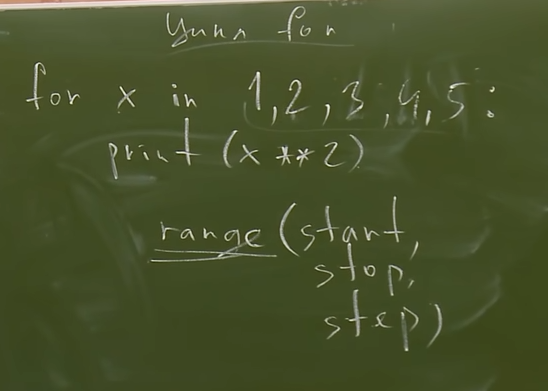 Цикл for
for x in 1,2,3,4,5:
print (x **2)
range (start,
stop,
step)